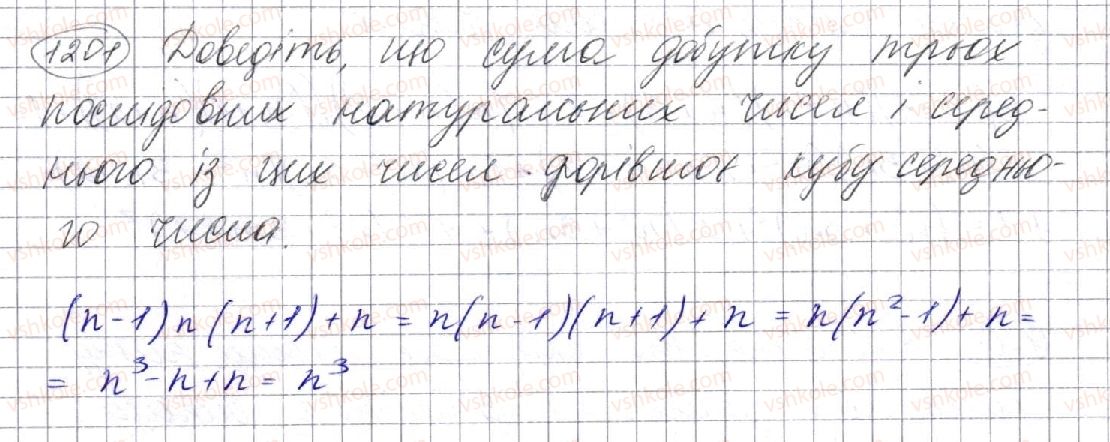 1201 Доведіть, що сума добутку трьох
послідовних натуральних чисел і серед-
нього із цих чисел дорівнює кубу середньо-
го числа.
(n-1)n(n+1)+n = n(n-1)(n+1)+n = n(n²-1)+n =
= n³-n+n = n³